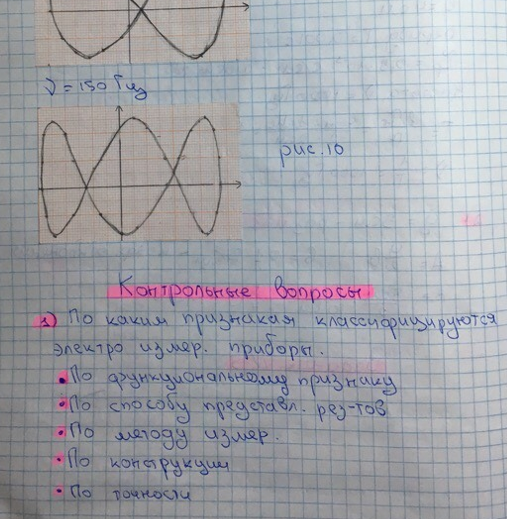 ν = 150 Гц
рис. 10
Контрольные вопросы
1) По каким признакам классифицируются
электро измер. приборы.
• По функциональному признаку
• По способу представл. рез-тов
• По методу измер.
• По конструкции
• По точности